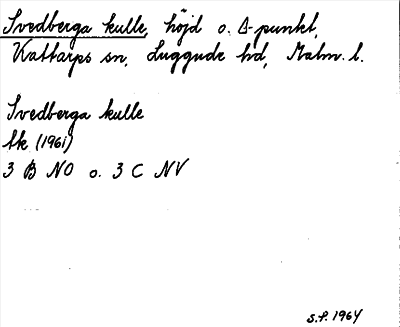 Svedberga kulle, höjd o. Δ-punkt,
Kattarps sn, Luggude hd, Malm. l.
Svedberga kulle
Ek (1961)
3 B NO o. 3 C NV
S.P. 1964